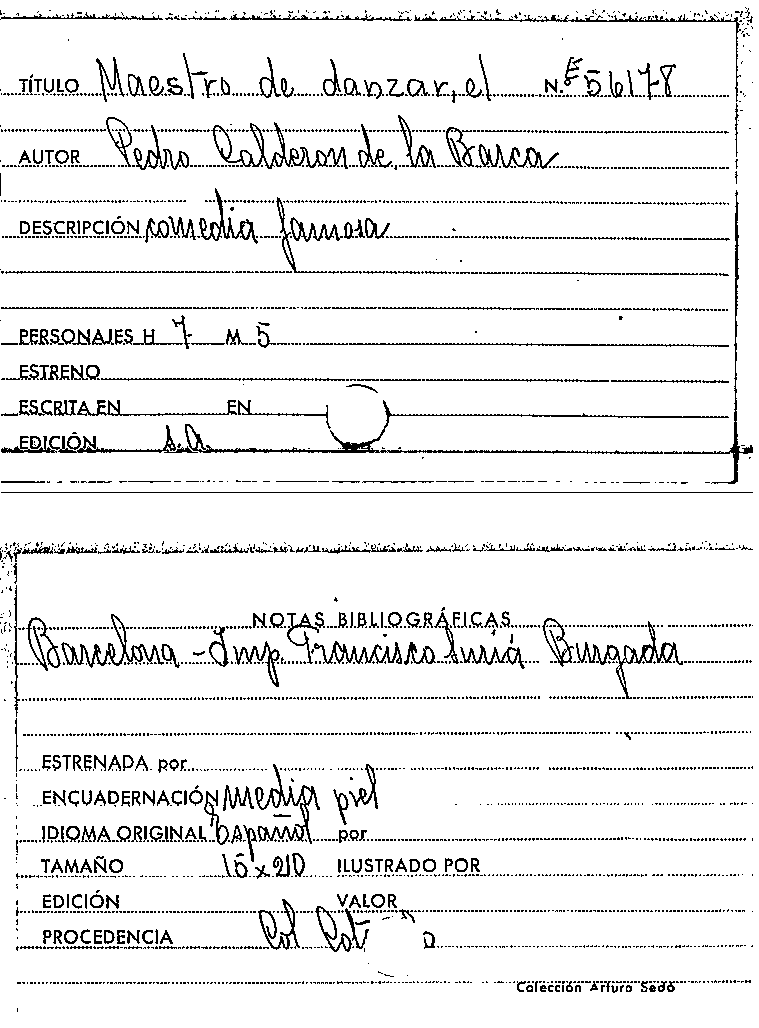 TÍTULO Maestro de danzar, el N.º 56178
AUTOR Pedro Calderon de la Barca
DESCRIPCIÓN comedia famosa
PERSONAJES H 7 M 5
ESTRENO
ESCRITA EN EN
EDICIÓN s.a.
NOTAS BIBLIOGRÁFICAS
Barcelona - Imp. Francisco Suriá Burgada
ESTRENADA por
ENCUADERNACIÓN media piel
IDIOMA ORIGINAL Español por
TAMAÑO 15 x 210 ILUSTRADO POR
EDICIÓN VALOR
PROCEDENCIA Col
Colección Arturo Sedó